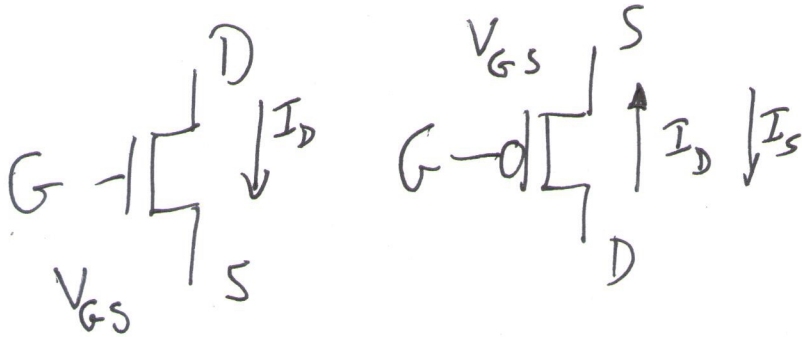 D
I_D
G
V_GS
S
V_GS
S
G
I_D
I_S
D